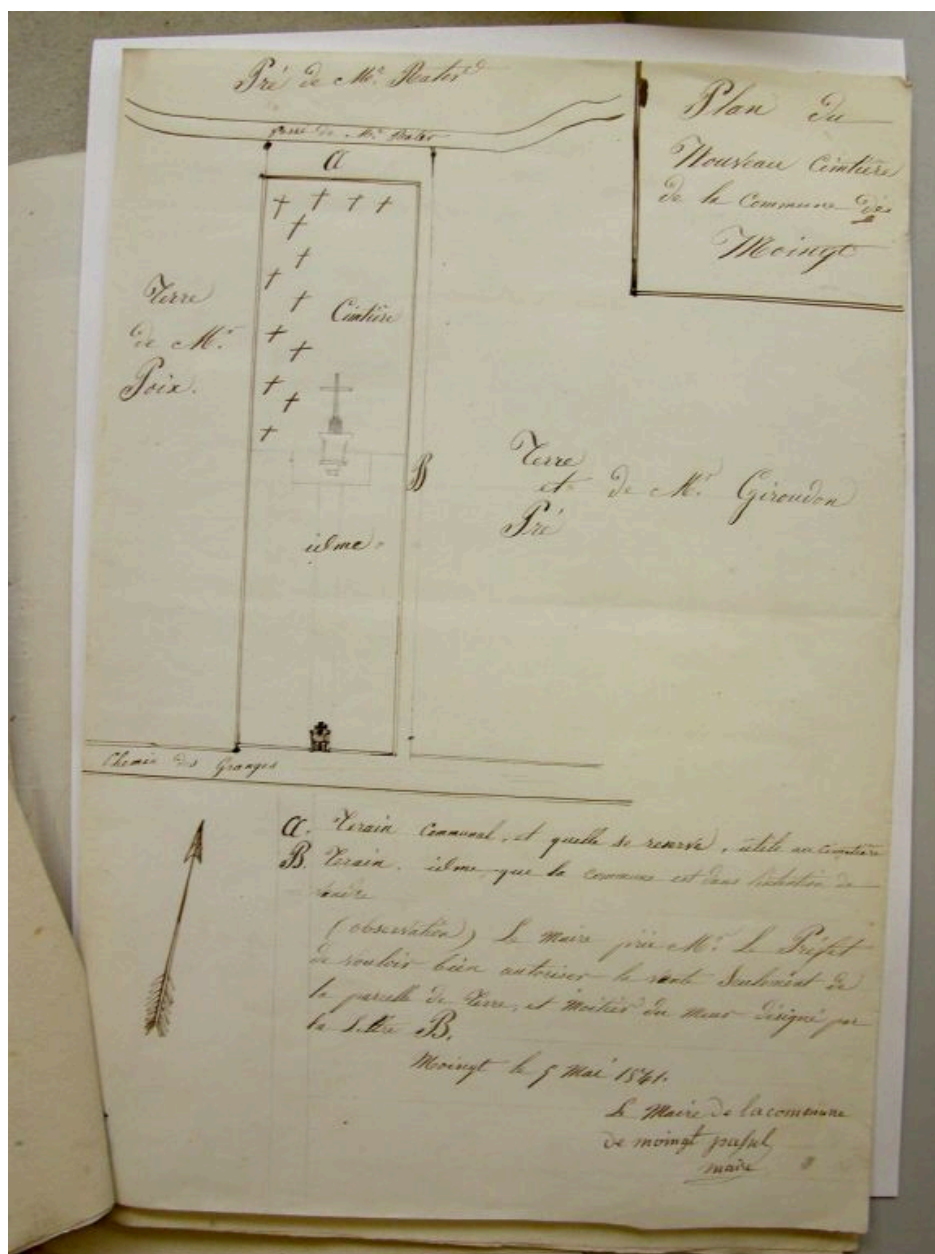 Pré de Mr. Rater
Plan du
Nouveau Cimtière
de la Commune de
Moingt
de Mr. Rater
A
Terre
de Mr.
Poix.
Cimtière
B
Terre
et de Mr. Giroudon
Pré
idme.
Chemin des Granges
A. Terain Communal, et quelle se reserve, utile au Cimetière
B. Terain. idme, que la commune est dans l'intention de
vendre
(observation) Le Maire prie Mr. Le Préfet
de vouloir bien autoriser la vente Seulement de
la parcelle de Terre, et moitier du meur désigné par
la Lettre B.
Moingt le 5 Mai 1841.
Le Maire de la commune
de moingt
maire